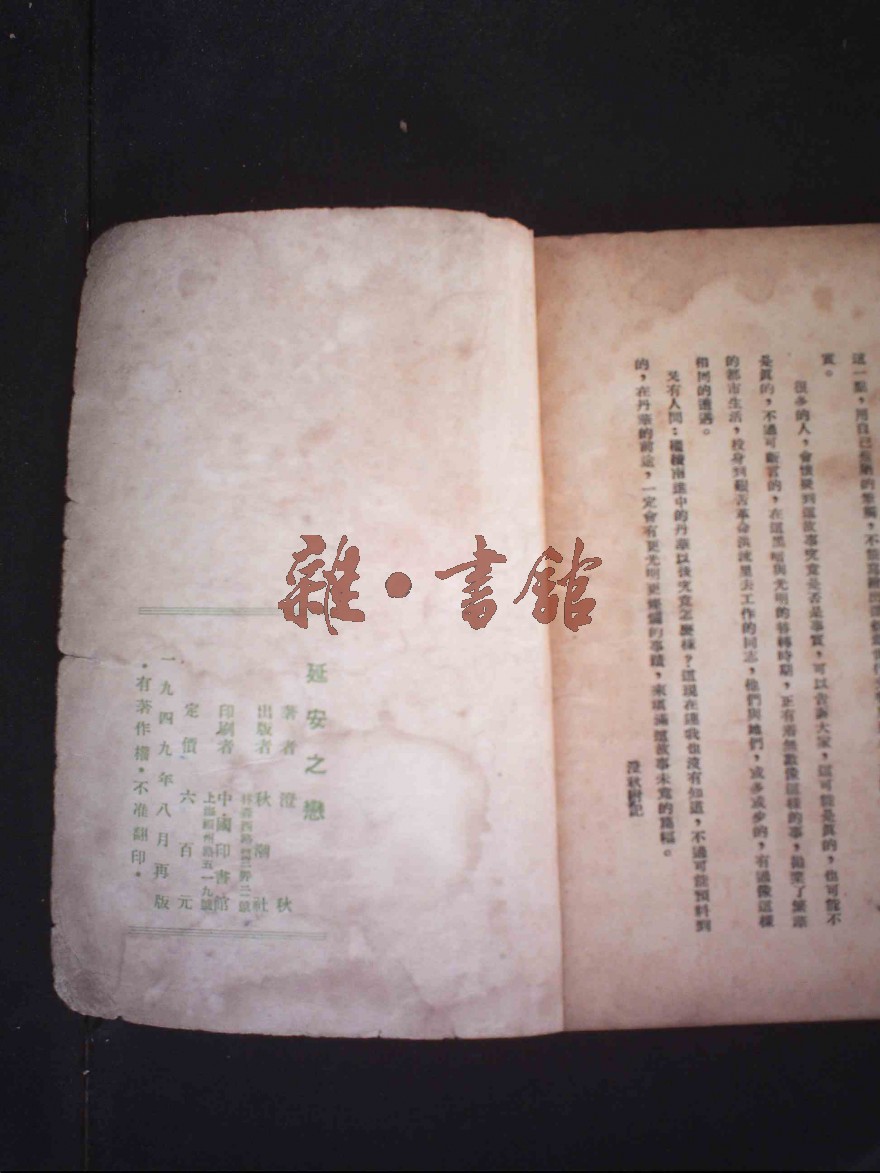 這一點，用自己
實。
很多的人，會懷疑到這故事究竟是否是事實，可以告訴大家，這可能是眞的，也可能不
是眞的，不過可斷言的，在這黑暗與光明的移轉時期，正有着無數像這樣的事，拋棄了繁華
的都市生活，投身到艱苦革命洪流里去工作的同志，他們與她們，或多或少的，有過像這樣
相同的遭遇。
又有人問：繼續前進中的丹華以後究竟怎麽樣？這現在連我也沒有知道，不過可能預料到
的，在丹華的前途，一定會有更光明更燦爛的事蹟，來塡滿這故事未竟的篇幅。
澄秋附記
雜·書館
延安之戀
著者 澄秋
出版者 秋潮社
林森西路
印刷者 中國印書館
上海 西路五一九號
定價六百元
一九四九年八月再版
·有著作權·不准翻印·